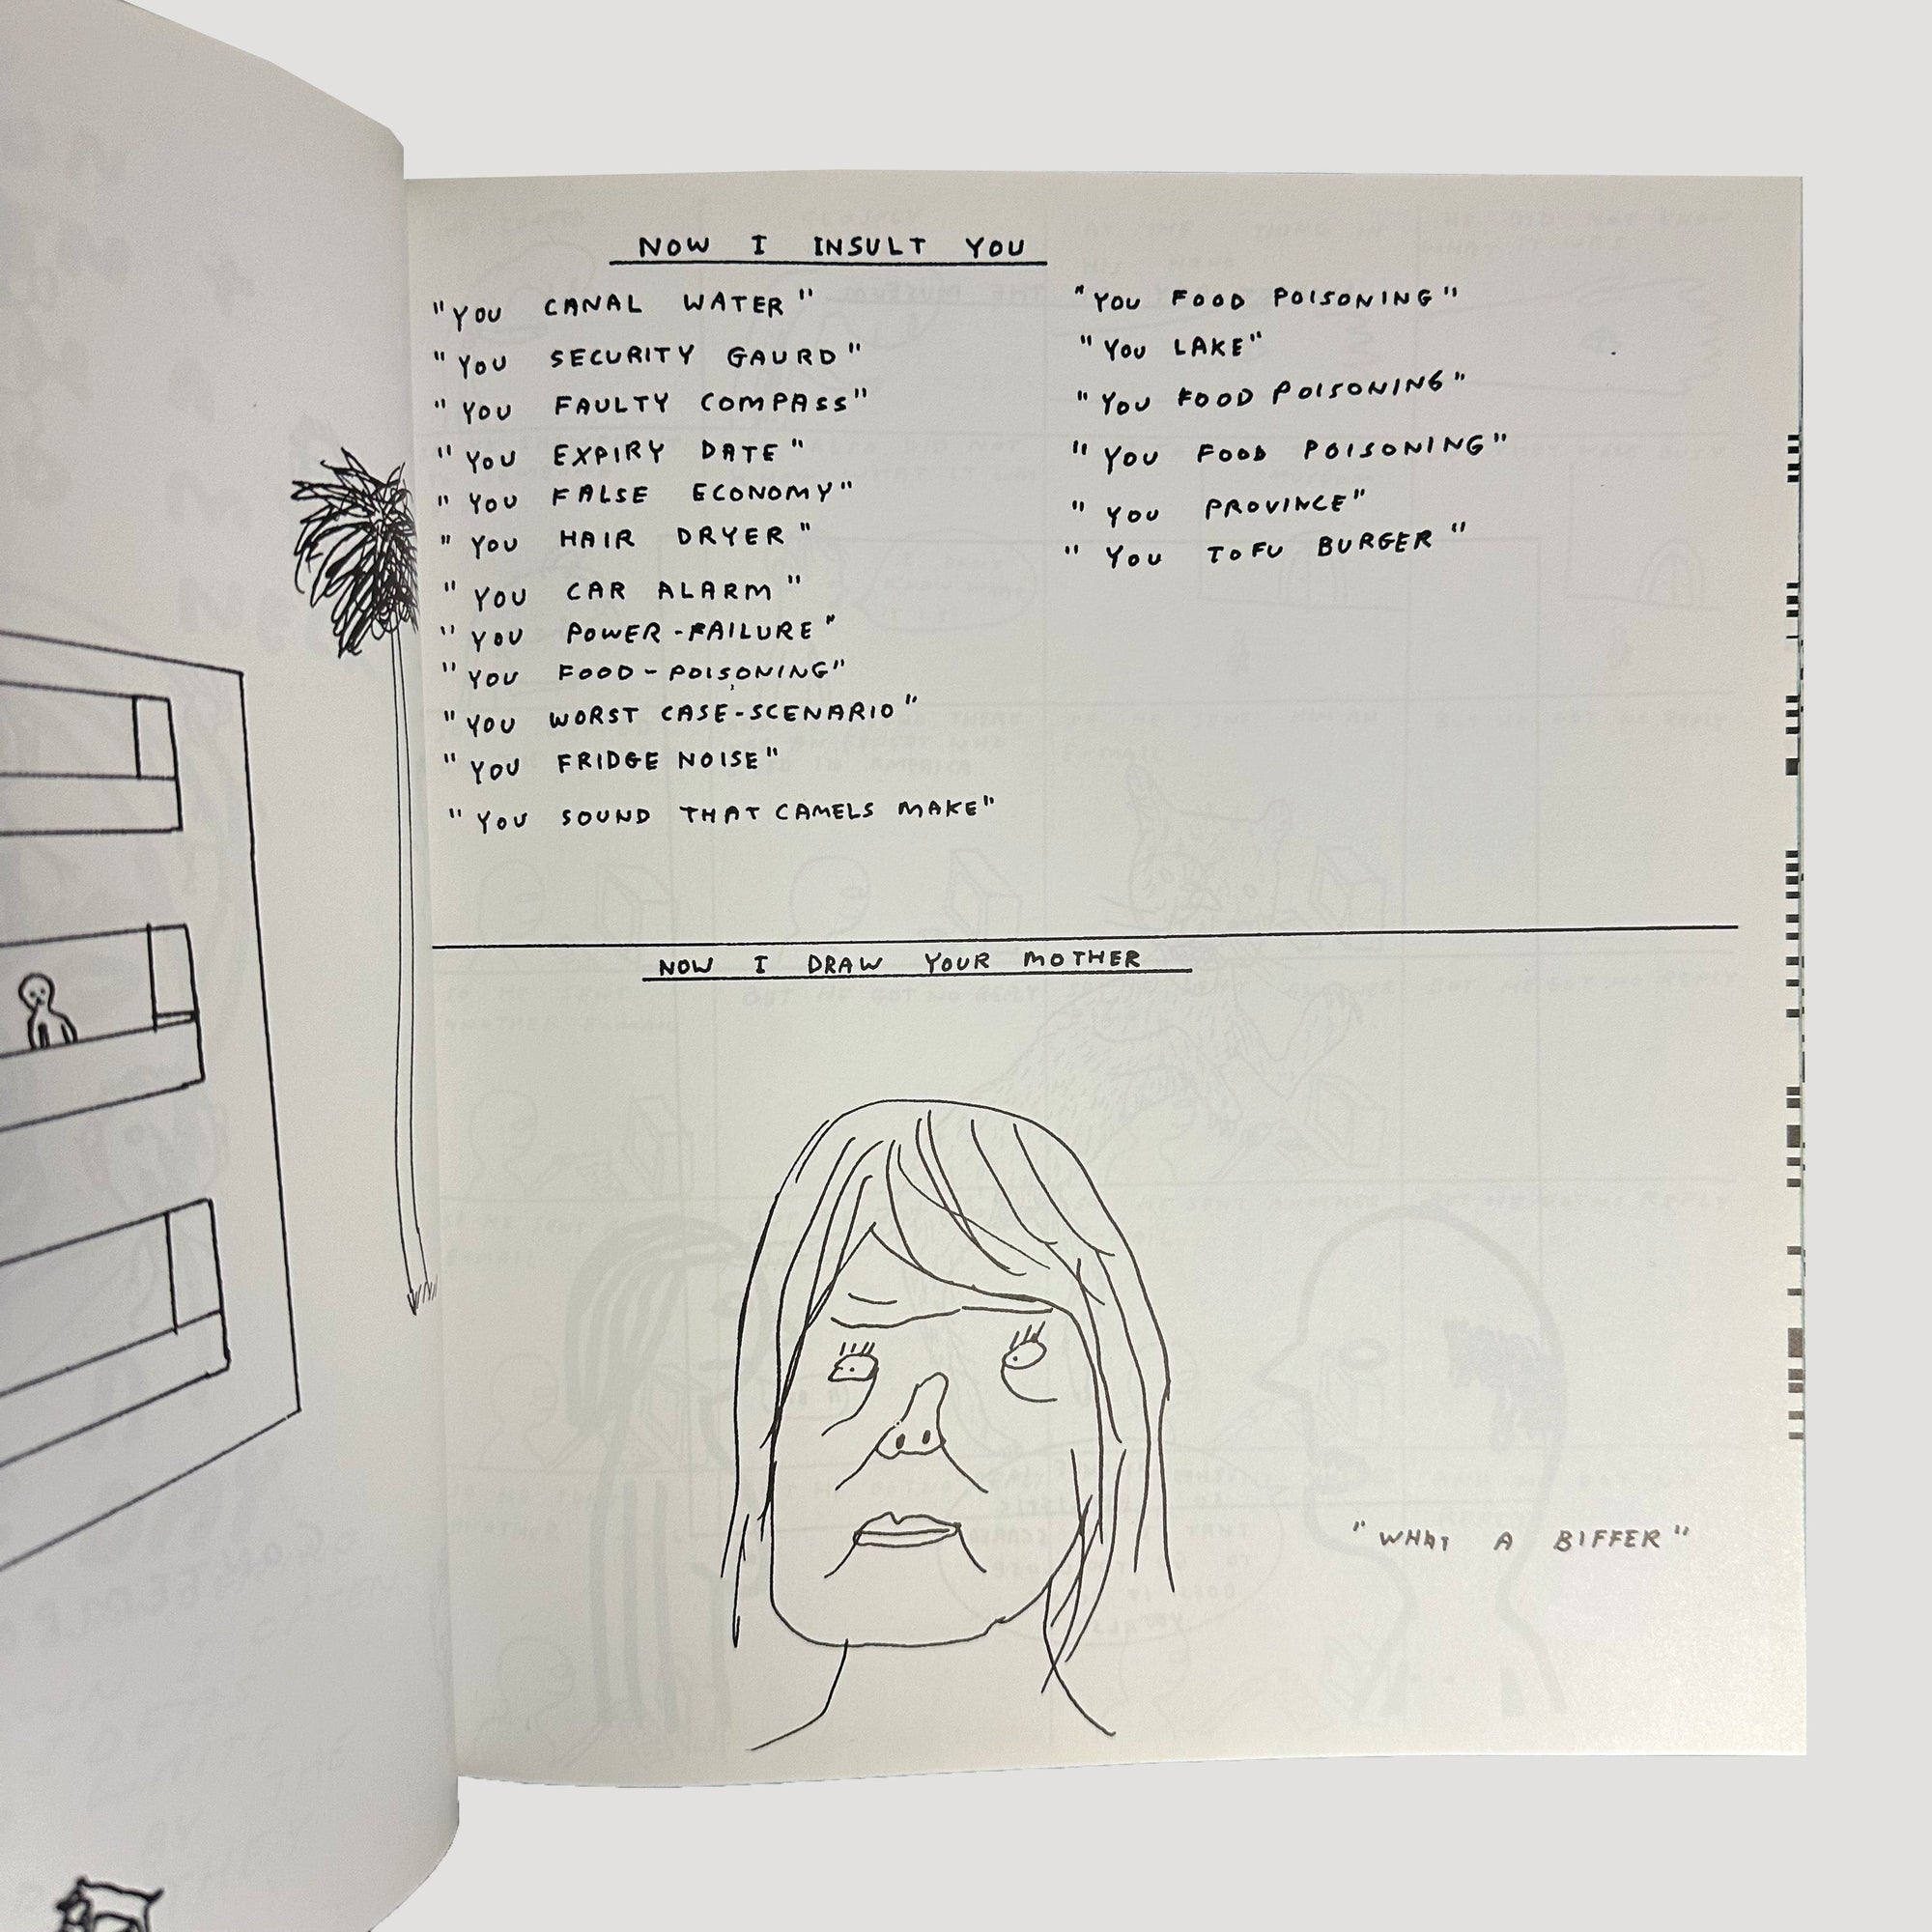 NOW I INSULT YOU
"YOU CANAL WATER"
"YOU SECURITY GAURD"
"YOU FAULTY COMPASS"
"YOU EXPIRY DATE"
"YOU FALSE ECONOMY"
"YOU HAIR DRYER"
"YOU CAR ALARM"
"YOU POWER-FAILURE"
"YOU FOOD-POISONING"
"YOU WORST CASE-SCENARIO"
"YOU FRIDGE NOISE"
"YOU SOUND THAT CAMELS MAKE"
"YOU FOOD POISONING"
"YOU LAKE"
"YOU FOOD POISONING"
"YOU FOOD POISONING"
"YOU PROVINCE"
"YOU TOFU BURGER"
NOW I DRAW YOUR MOTHER
"WHAT A BIFFER"